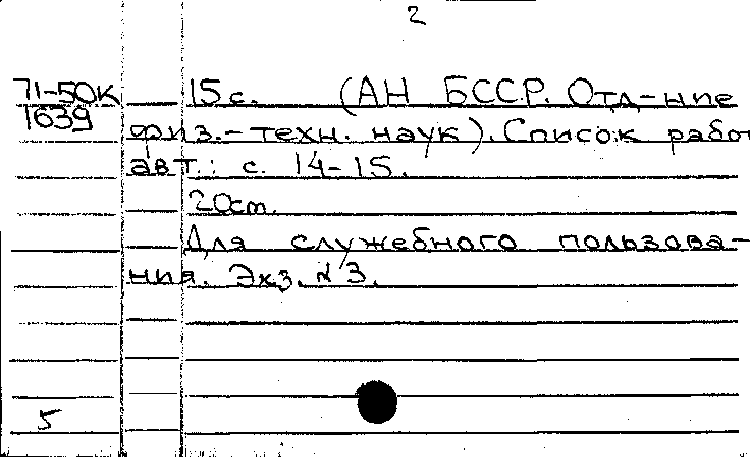 2
71-50К 15с. (АН БССР. Отд-ние
1639 физ.-техн. наук). Список работ
авт.: с. 14-15.
20см.
Для служебного пользова-
ния. Экз. №3.
5